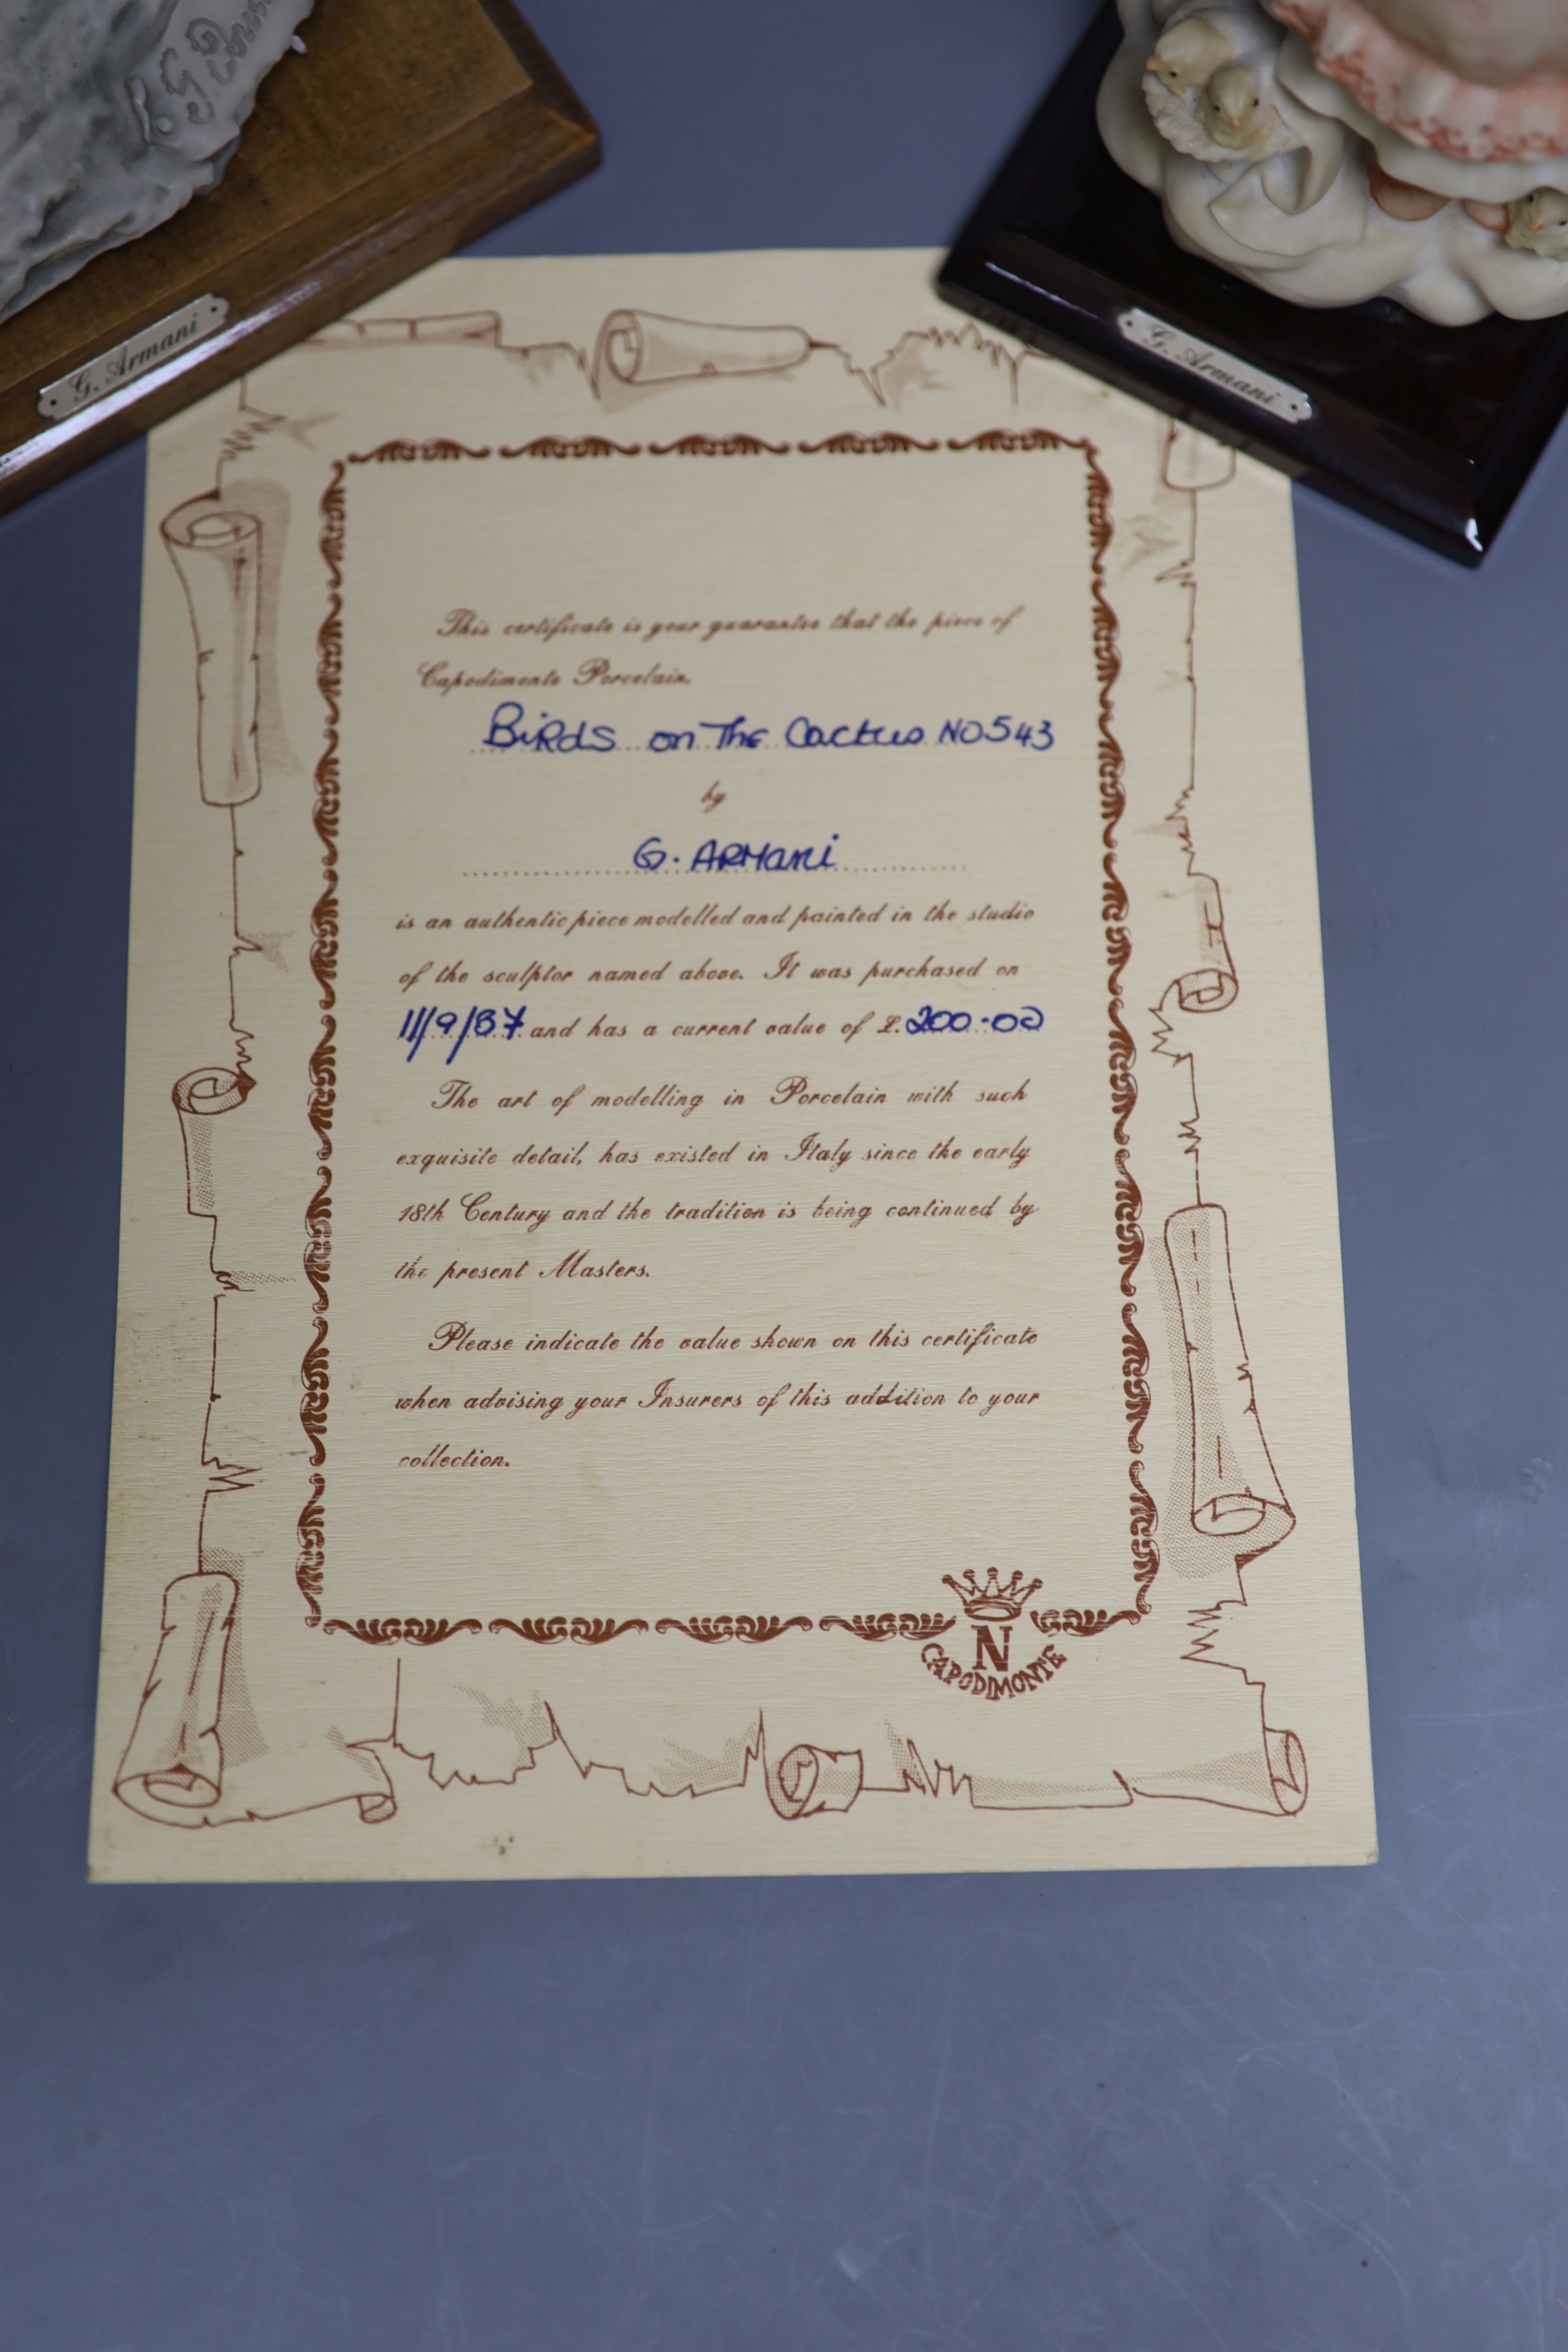 G. Armani
G. Armani
This certificate is your guarantee that the piece of
Capodimonte Porcelain.
BiRds on The Cactus NO543
by
G. ARMANi
is an authentic piece modelled and painted in the studio
of the sculptor named above. It was purchased on
11/9/87 and has a current value of £ 200·00
The art of modelling in Porcelain with such
exquisite detail, has existed in Italy since the early
18th Century and the tradition is being continued by
the present Masters.
Please indicate the value shown on this certificate
when advising your Insurers of this addition to your
collection.
N
CAPODIMONTE